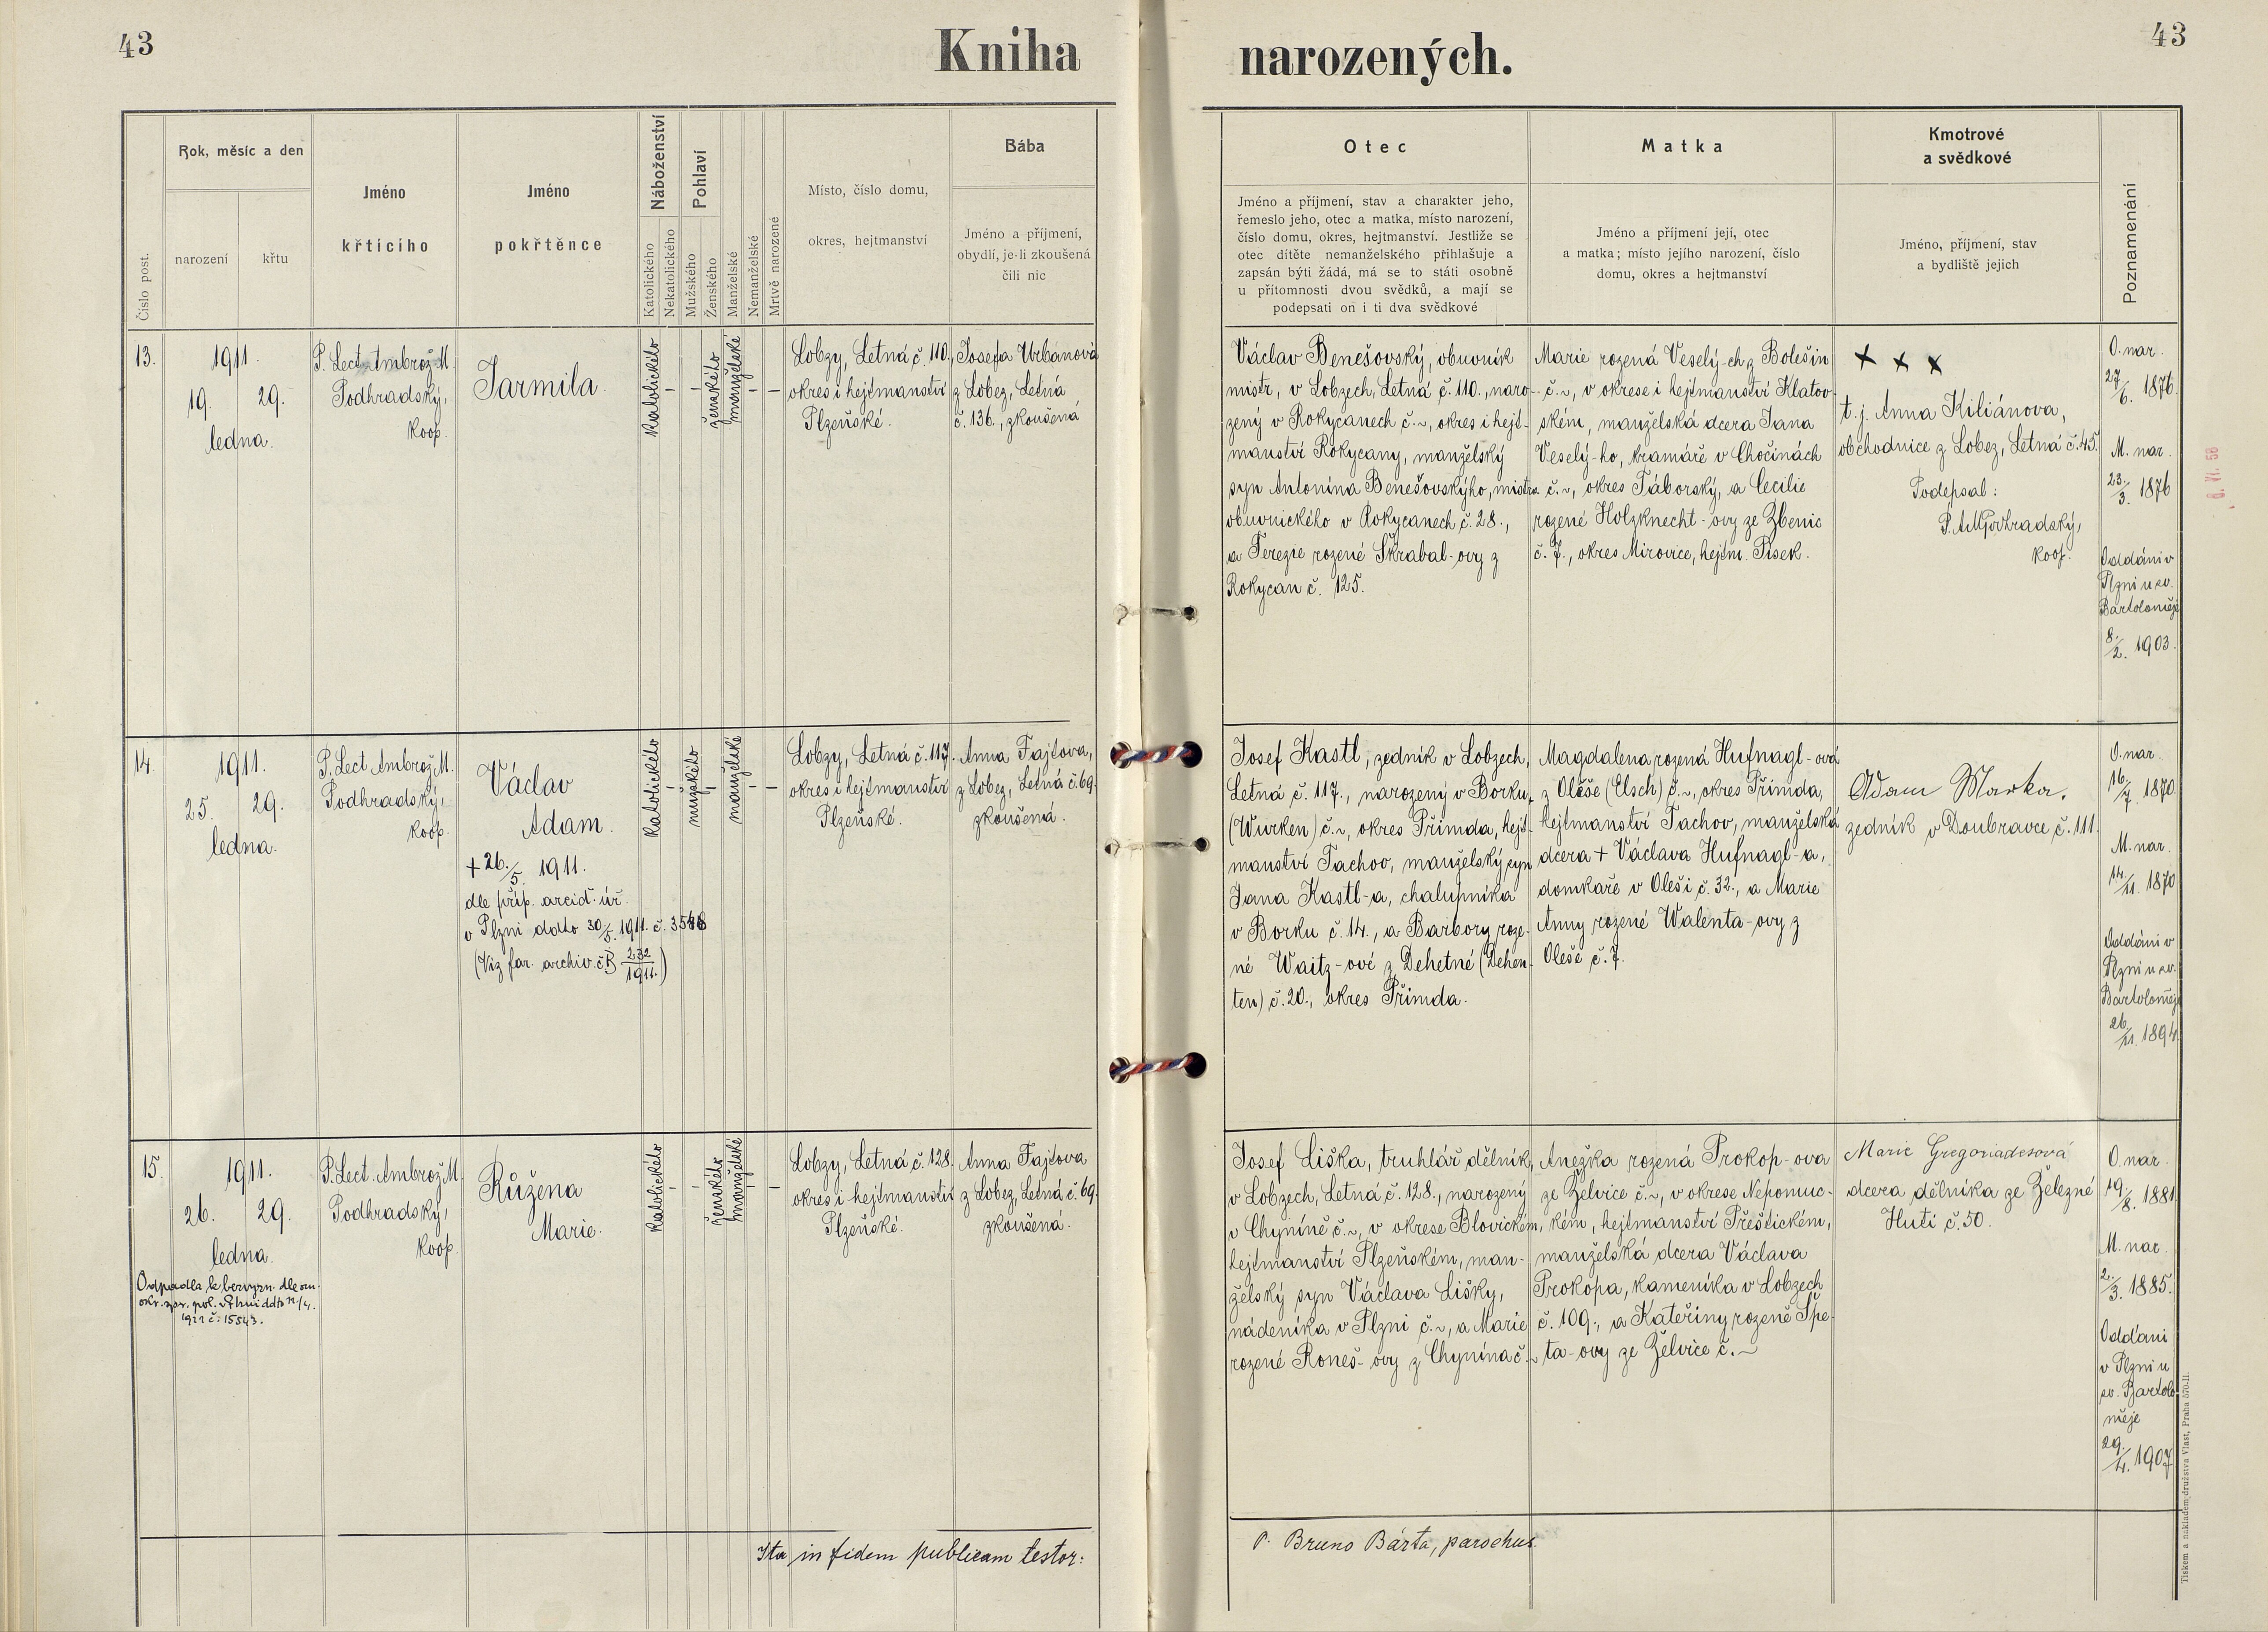 43
Kniha
narozených.
43
Číslo post.
Rok, měsíc a den
narození
křtu
Jméno
křtícího
Jméno
pokřtěnce
Náboženství
Katolického
Nekatolického
Pohlaví
Mužského
Ženského
Manželské
Nemanželské
Mrtvě narozené
Místo, číslo domu,
okres, hejtmanství
Bába
Jméno a příjmení,
obydlí, je-li zkoušená
čili nic
Otec
Jméno a příjmení, stav a charakter jeho,
řemeslo jeho, otec a matka, místo narození,
číslo domu, okres, hejtmanství. Jestliže se
otec dítěte nemanželského přihlašuje a
zapsán býti žádá, má se to státi osobně
u přítomnosti dvou svědků, a mají se
podepsati on i ti dva svědkové
Matka
Jméno a příjmení její, otec
a matka; místo jejího narození, číslo
domu, okres a hejtmanství
Kmotrové
a svědkové
Jméno, příjmení, stav
a bydliště jejich
Poznamenání
13.
1911.
19. 29.
ledna.
P. Lect. Ambrož M.
Podhradský,
koop.
Jarmila.
katolického
-
-
ženského
manželské
-
-
Lobzy, Letná č. 110,
okres i hejtmanství
Plzeňské.
Josefa Urbanová
z Lobez, Letná
č. 136., zkoušená
Václav Benešovský, obuvník
mistr, v Lobzech, Letná č. 110., naro-
zený v Rokycanech č. ~, okres i hejt-
manství Rokycany, manželský
syn Antonína Benešovskýho, mistra
obuvnického v Rokycanech č. 28.,
a Terezie rozené Škrabal-ovy z
Rokycan č. 125.
Marie rozená Veselý-ch z Bolešin
č. ~, v okrese i hejtmanství Klatov-
ském, manželská dcera Jana
Veselý-ho, kramáře v Chočinách
č. ~, okres Táborský, a Cecilie
rozené Holzknecht-ovy ze Zbenic
č. 7., okres Mirovice, hejtm. Písek.
x x x
t. j. Anna Kiliánova,
obchodnice z Lobez, Letná č. 45.
Podepsal:
P. A. M. Podhradský,
koop.
O. nar.
27/6. 1876.
M. nar.
23./3. 1876
Oddáni v
Plzni u sv.
Bartoloměje
8./2. 1903.
14.
1911.
25. 29.
ledna.
P. Lect. Ambrož M.
Podhradský,
koop.
Václav
Adam.
+ 26./5. 1911.
dle příp. arcid. úř.
v Plzni ddto 30/5. 1911. č. 3548
(Viz far. archiv. č. B 232/1911.)
katolického
-
mužského
-
manželské
-
-
Lobzy, Letná č. 117.
okres i hejtmanství
Plzeňské.
Anna Fajtova,
z Lobez, Letná č. 69.
zkoušená.
Josef Kastl, zedník v Lobzech,
Letná č. 117., narozený v Borku,
(Wurken) č. ~, okres Přimda, hejt-
manství Tachov, manželský syn
Jana Kastl-a, chalupníka
v Borku č. 14., a Barbory roze-
né Waitz-ové z Dehetné (Dehen-
ten) č. 20., okres Přimda.
Magdalena rozená Hufnagl-ová
z Oleše (Elsch) č. ~, okres Přimda,
hejtmanství Tachov, manželská
dcera + Václava Hufnagl-a,
domkaře v Oleši č. 32., a Marie
Anny rozené Walenta-ovy z
Oleše č. 7.
Adam Marka,
zedník v Doubravce č. 111.
O. nar.
16./7. 1870.
M. nar.
14./11. 1870
Oddáni v
Plzni u sv.
Bartoloměje
26./11. 1894.
15.
1911.
26. 29.
ledna.
Odpadla k bezvyzn. dle ozn.
1921 č. 15543.
P. Lect. Ambrož M.
Podhradský,
koop.
Růžena
Marie.
katolického
-
-
ženského
manželské
-
-
Lobzy, Letná č. 128.
okres i hejtmanství
Plzeňské.
Anna Fajtova
z Lobez, Letná č. 69.
zkoušená.
Josef Liška, truhlář. dělník,
v Lobzech, Letná č. 128., narozený
v Chyníně č. ~, v okrese Blovickém,
hejtmanství Plzeňském, man-
želský syn Václava Lišky,
nádeníka v Plzni č. ~, a Marie
rozené Roneš-ovy z Chynína č. ~
Anežka rozená Prokop-ova
ze Želvice č. ~, v okrese Nepomuc-
kém, hejtmanství Přeštickém,
manželská dcera Václava
Prokopa, kameníka v Lobzech
č. 109., a Kateřiny rozené Špe-
ta-ovy ze Želvice č. ~
Marie Gregoriadesová
dcera dělníka ze Železné
Huti č. 50.
O. nar.
19./8. 1881.
M. nar.
2./3. 1885.
Oddáni
v Plzni u
sv. Bartolo
měje
29./4. 1907
Ita in fidem publicam testor:
P. Bruno Bárta, parochus.
Tiskem a nákladem družstva Vlast, Praha 570-II.